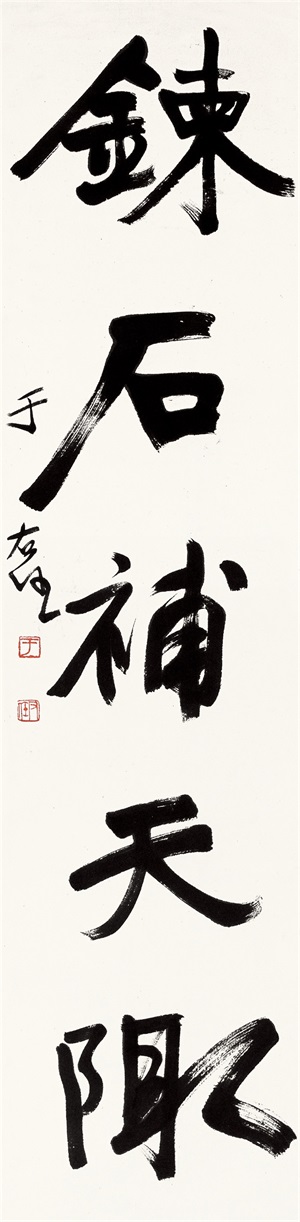 鍊石補天陬
于右任